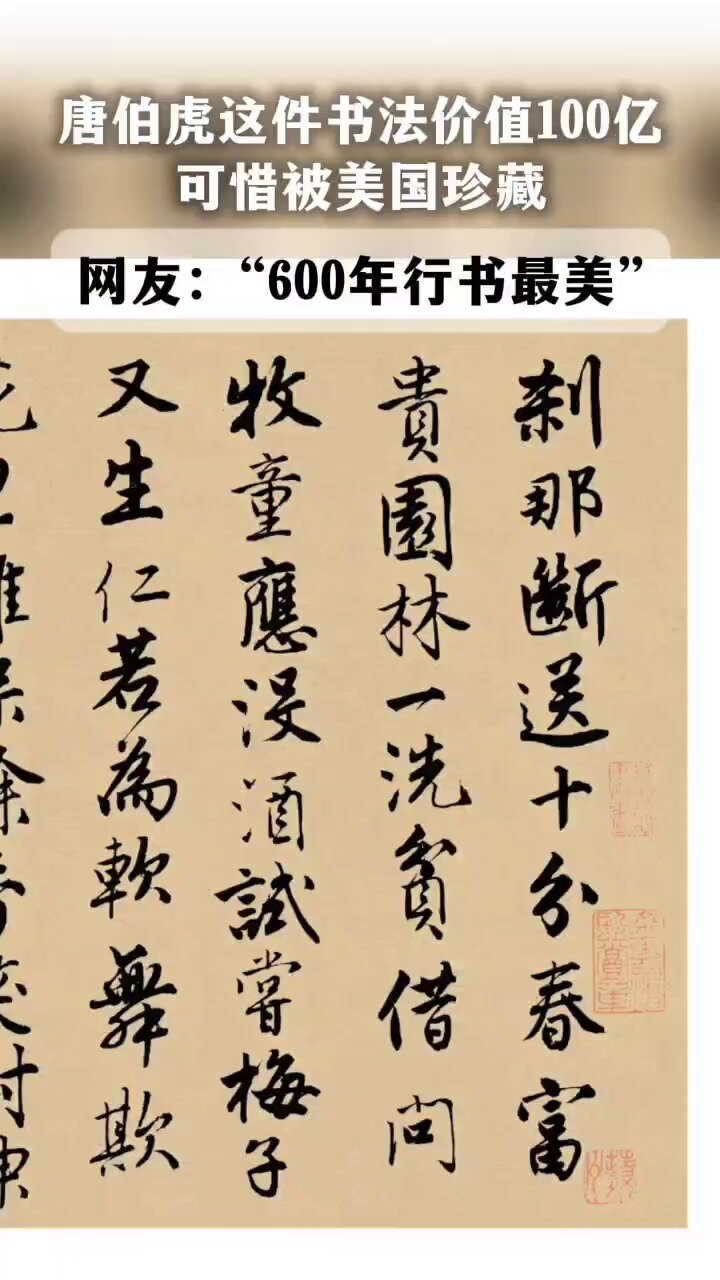 唐伯虎这件书法价值100亿
可惜被美国珍藏
网友：“600年行书最美”
刹那斷送十分春富
貴園林一洗貧借問
牧童應没酒試嘗梅子
又生仁若為軟舞欺